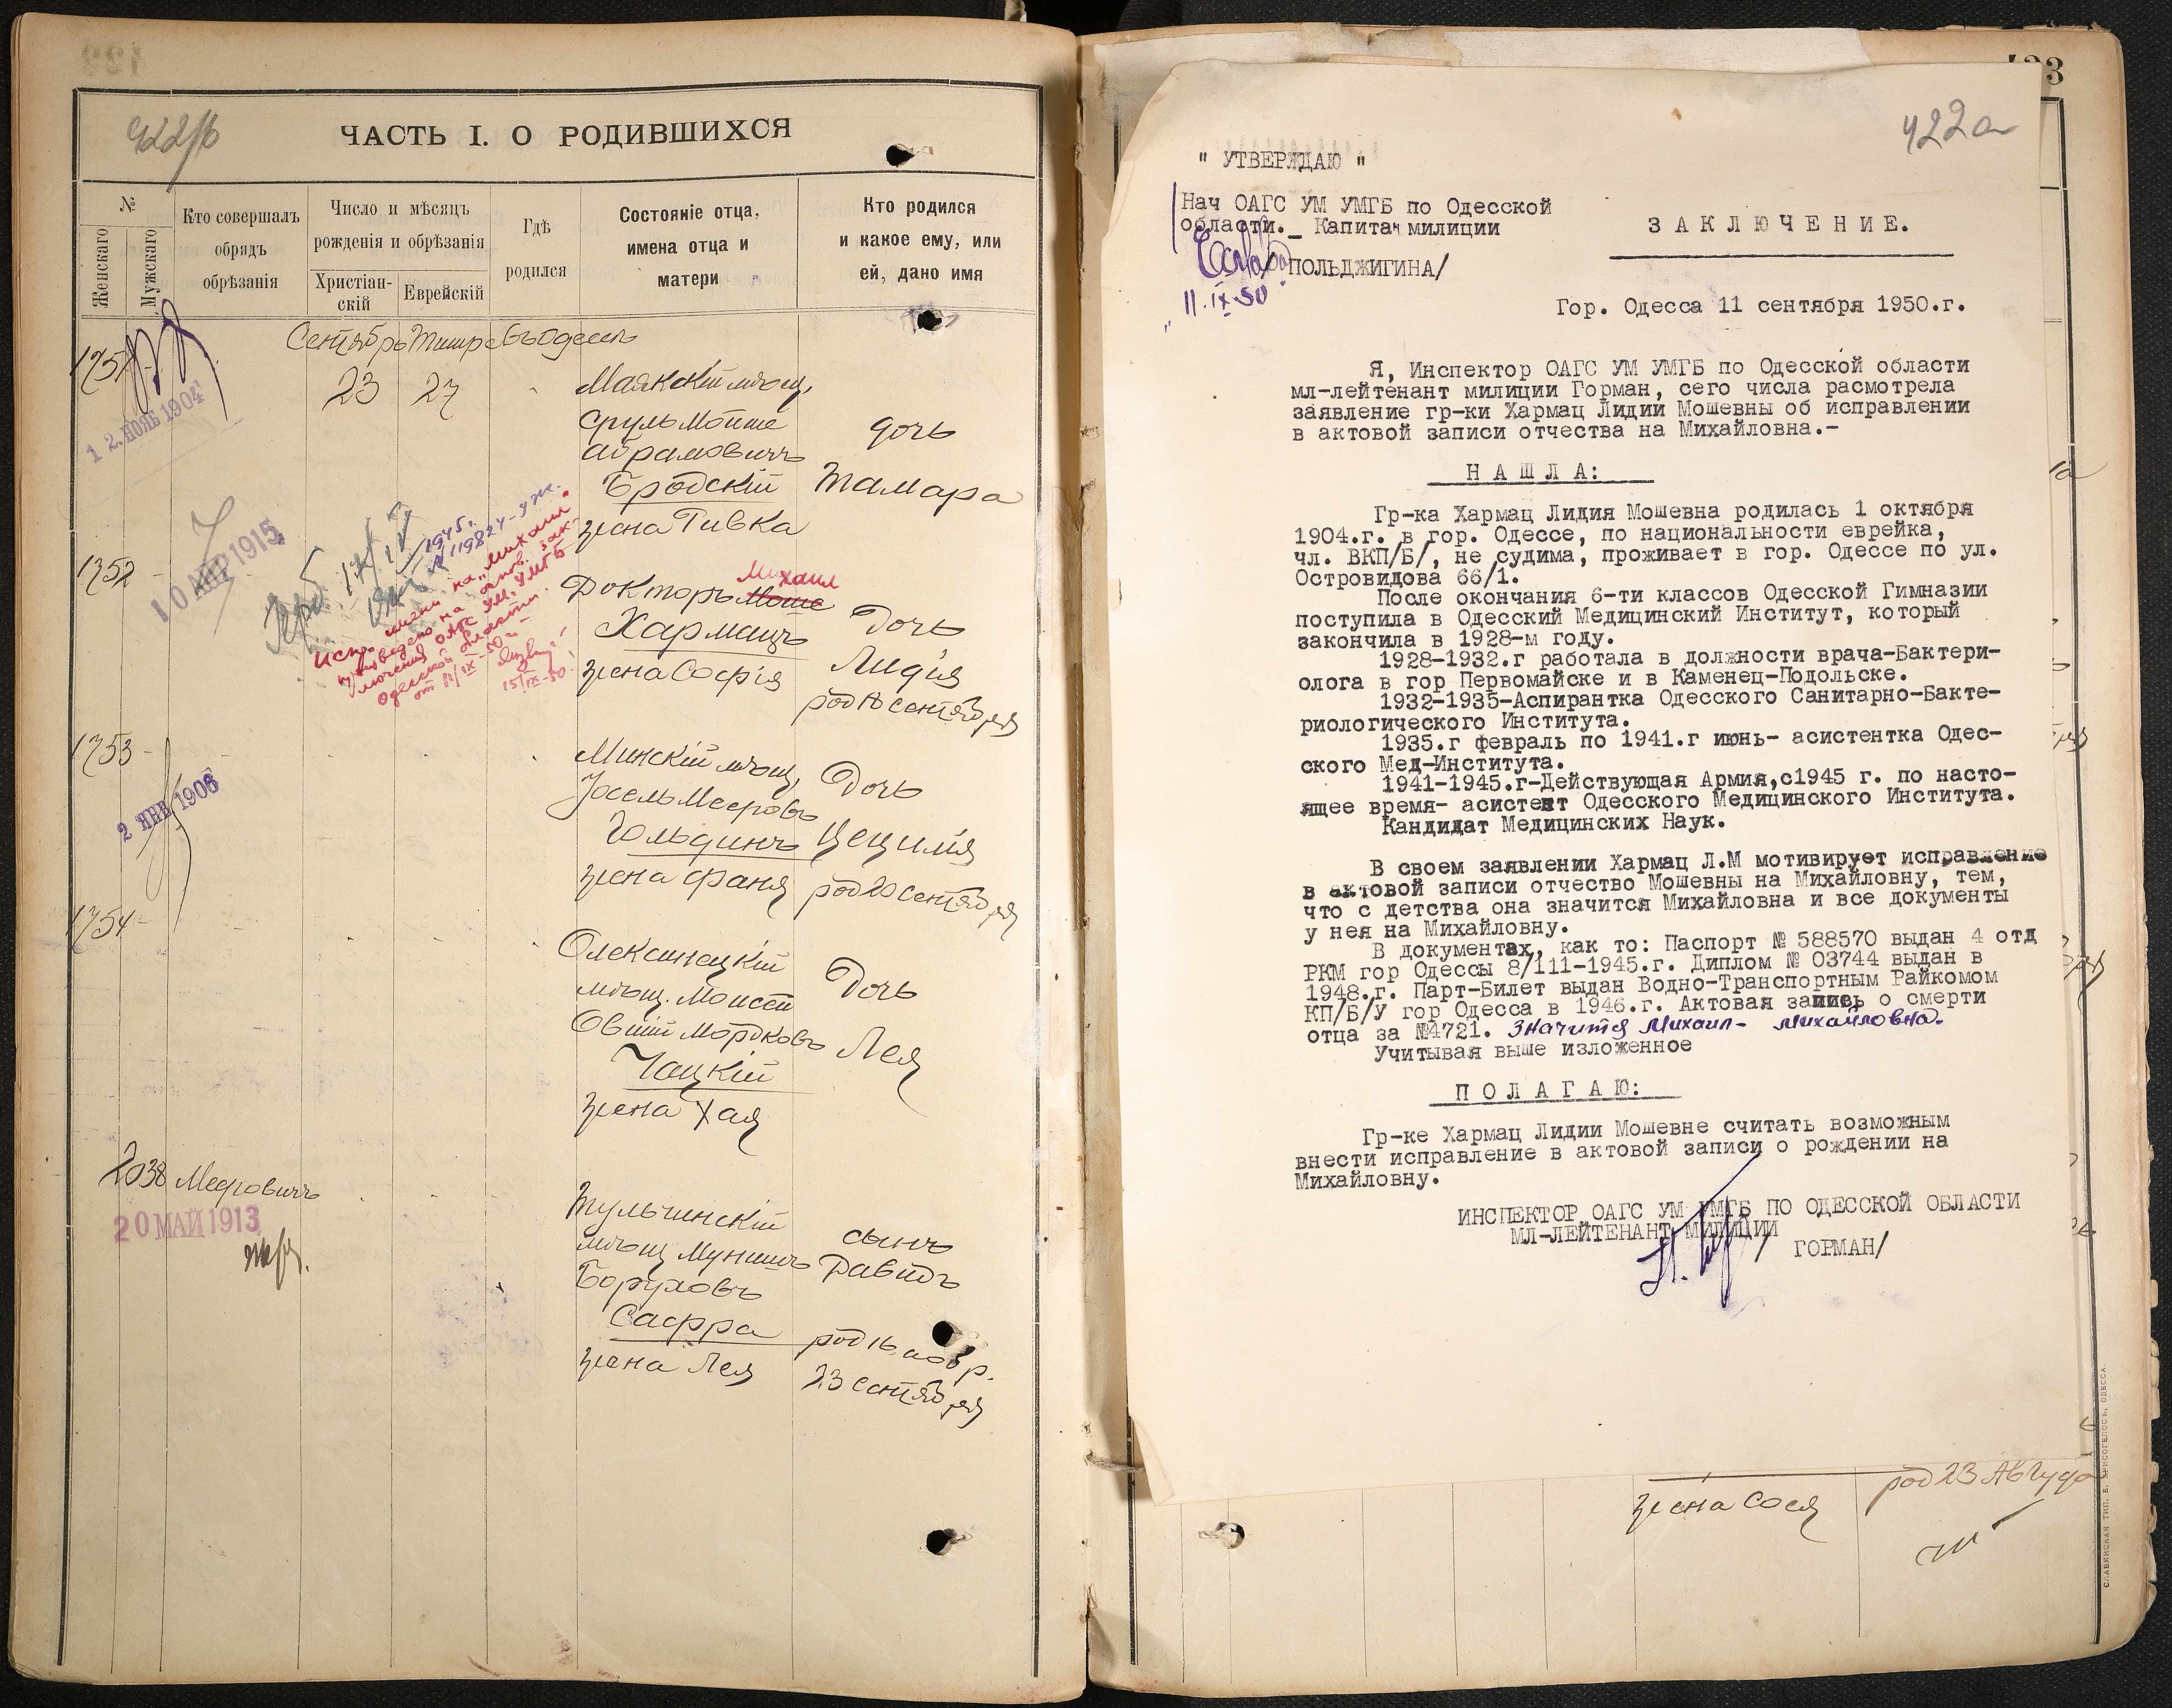 422/б
ЧАСТЬ I. О РОДИВШИХСЯ
№
Женскаго
Мужскаго
Кто совершалъ
обрядъ
обрѣзанія
Число и мѣсяцъ
рожденія и обрѣзанія
Христіан-
скій
Еврейскій
Гдѣ
родился
Состояніе отца,
имена отца и
матери
Кто родился
и какое ему, или
ей, дано имя
Сентябрь Тишре Въ Одессѣ
1751
12. НОЯБ 1904
23 27
Маякскій мѣщ.
Сруль Мойше
Абрамовичъ
Бродскій
жена Ривка
дочь
Тамара
1752 -
10 АПР 1915
1945г.
№ 119824
Испр. имени на „Михаил"
произведено на основ. зак-
лючения ОАГС УМ. УМГБ
Одесской области.
от 11/IX-50г-
15/IX-50.
Докторъ Моше
Михаил
Хармацъ
жена Софія
Дочь
Лидія
род 18 сентября
1753 -
2 ЯНВ 1906
Минскій мѣщ.
Іосель Мееровъ
Гольдинъ
жена Фаня
Дочь
Цецилія
род 20 сентября
1754 -
Олексинецкій
мѣщ. Моисей
Овшій Мордковъ
Чацкій
жена Хая
Дочь
Лея
2038 Мееровичъ
20 МАЙ 1913
Тульчинскій
мѣщ Мунишъ
Боруховъ
Сафра
жена Лея
сынъ
Давидъ
род 16 обр.
23 сентября
422а
" УТВЕРЖДАЮ "
Нач ОАГС УМ УМГБ по Одесской
области._ Капитан милиции
ПОЛЬДЖИГИНА/
11.IX-50.
З А К Л Ю Ч Е Н И Е.
Гор. Одесса 11 сентября 1950.г.
Я, Инспектор ОАГС УМ УМГБ по Одесской области
мл-лейтенант милиции Горман, сего числа расмотрела
заявление гр-ки Хармац Лидии Мошевны об исправлении
в актовой записи отчества на Михайловна.-
Н А Ш Л А:
Гр-ка Хармац Лидия Мошевна родилась 1 октября
1904.г. в гор. Одессе, по национальности еврейка,
чл. ВКП/Б/, не судима, проживает в гор. Одессе по ул.
Островидова 66/1.
После окончания 6-ти классов Одесской Гимназии
поступила в Одесский Медицинский Институт, который
закончила в 1928-м году.
1928-1932.г работала в должности врача-Бактери-
олога в гор Первомайске и в Каменец-Подольске.
1932-1935-Аспирантка Одесского Санитарно-Бакте-
риологического Института.
1935.г февраль по 1941.г июнь- асистентка Одес-
ского Мед-Института.
1941-1945.г-Действующая Армия,с1945 г. по насто-
ящее время- асистент Одесского Медицинского Института.
Кандидат Медицинских Наук.
В своем заявлении Хармац Л.М мотивирует исправление
в актовой записи отчество Мошевны на Михайловну, тем,
что с детства она значится Михайловна и все документы
у нея на Михайловну.
В документах, как то: Паспорт № 588570 выдан 4 отд
РКМ гор Одессы 8/111-1945.г. Диплом № 03744 выдан в
1948.г. Парт-Билет выдан Водно-Транспортным Райкомом
КП/Б/У гор Одесса в 1946.г. Актовая запись о смерти
отца за №4721. Значится Михаил- Михайловна.
Учитывая выше изложенное
П О Л А Г А Ю:
Гр-ке Хармац Лидии Мошевне считать возможным
внести исправление в актовой записи о рождении на
Михайловну.
ИНСПЕКТОР ОАГС УМ УМГБ ПО ОДЕССКОЙ ОБЛАСТИ
МЛ-ЛЕЙТЕНАНТ МИЛИЦИИ
/ ГОРМАН/
жена Сося
род 23 Августа
СЛАВЯНСКАЯ ТИП. Е. ХРИСОГЕЛОСЪ, ОДЕССА.